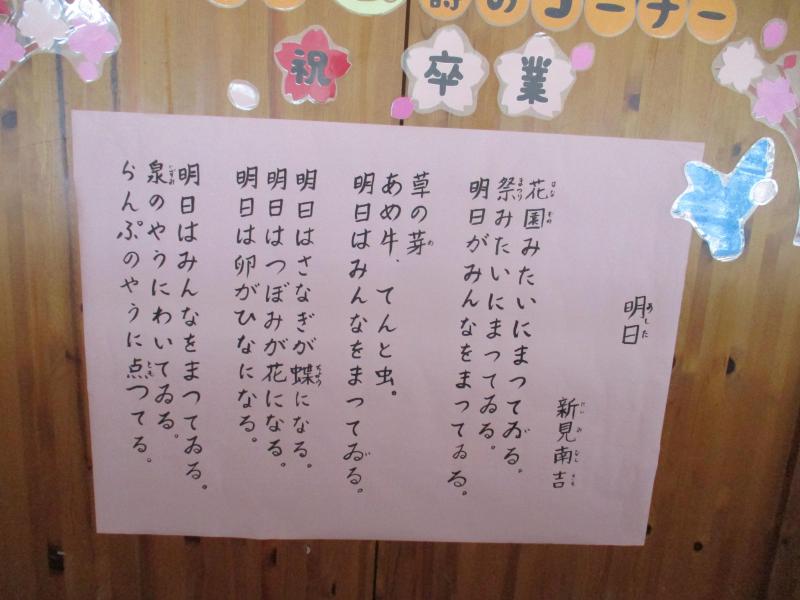 詩のコーナー
祝 卒業
明日
新見南吉
花園みたいにまつてゐる。
祭みたいにまつてゐる。
明日がみんなをまつてゐる。
草の芽
あめ牛、てんと虫。
明日はみんなをまつてゐる。
明日はさなぎが蝶になる。
明日はつぼみが花になる。
明日は卵がひなになる。
明日はみんなをまつてゐる。
泉のやうにわいてゐる。
らんぷのやうに点つてる。